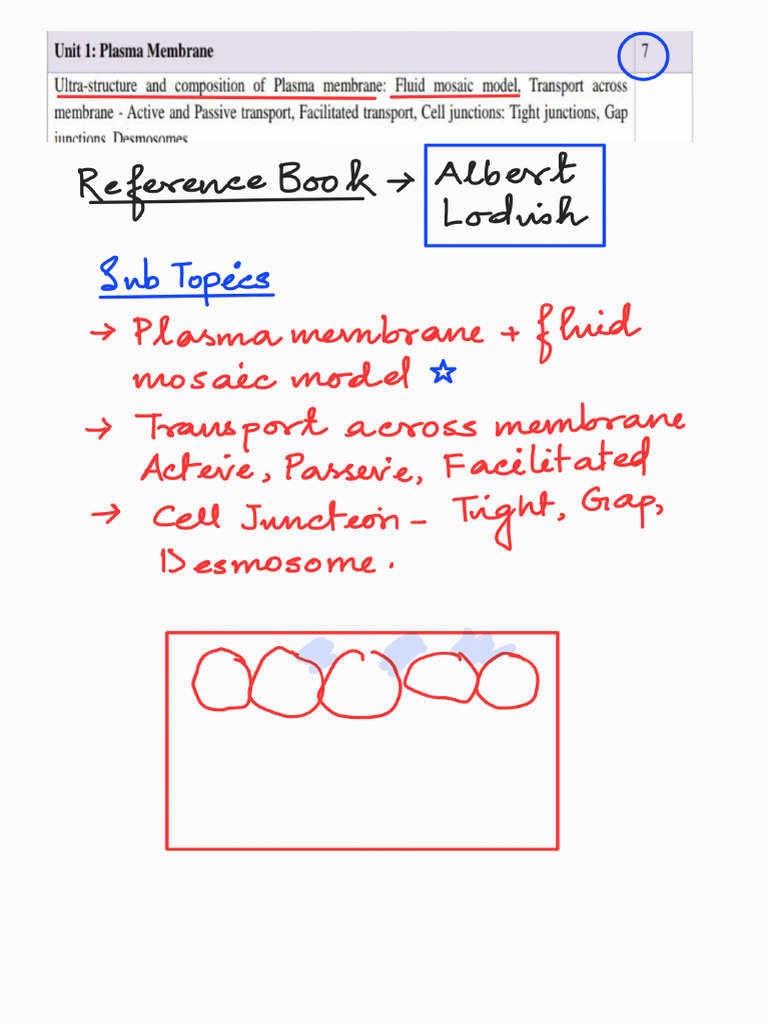 Unit 1: Plasma Membrane 7
Ultra-structure and composition of Plasma membrane: Fluid mosaic model, Transport across
membrane - Active and Passive transport, Facilitated transport, Cell junctions: Tight junctions, Gap
junctions, Desmosomes
Reference Book → Albert
Lodish
Sub Topics
→ Plasma membrane + fluid
mosaic model ☆
→ Transport across membrane
Active, Passive, Facilitated
→ Cell Junction - Tight, Gap,
Desmosome.